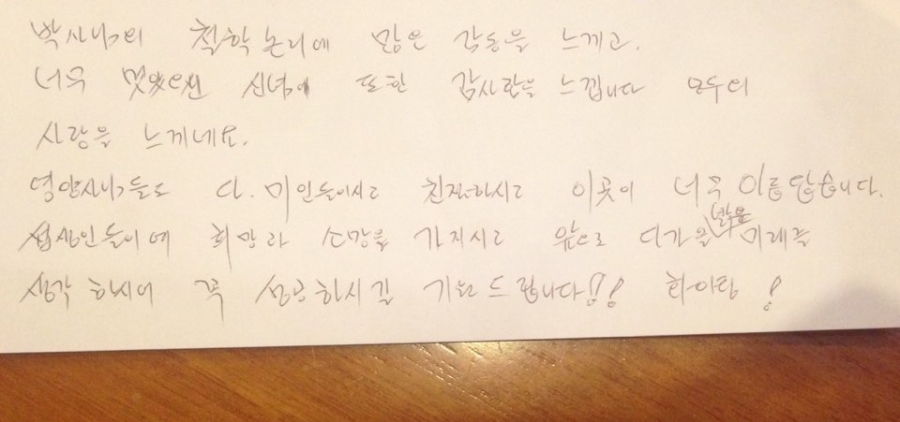 박사님의 철학논리에 많은 감동을 느끼고.
너무 멋있으신 신념에 또한 감사함을 느낍니다 모두의
사랑을 느끼네요.
영양사님들도 다. 미인들이시고 친절하시고 이곳이 너무 아름답습니다.
희망과 소망을 가지시고 앞으로 다가올 밝은 미래를
생각하시어 꼭 성공하시길 기원드립니다!!! 화이팅!